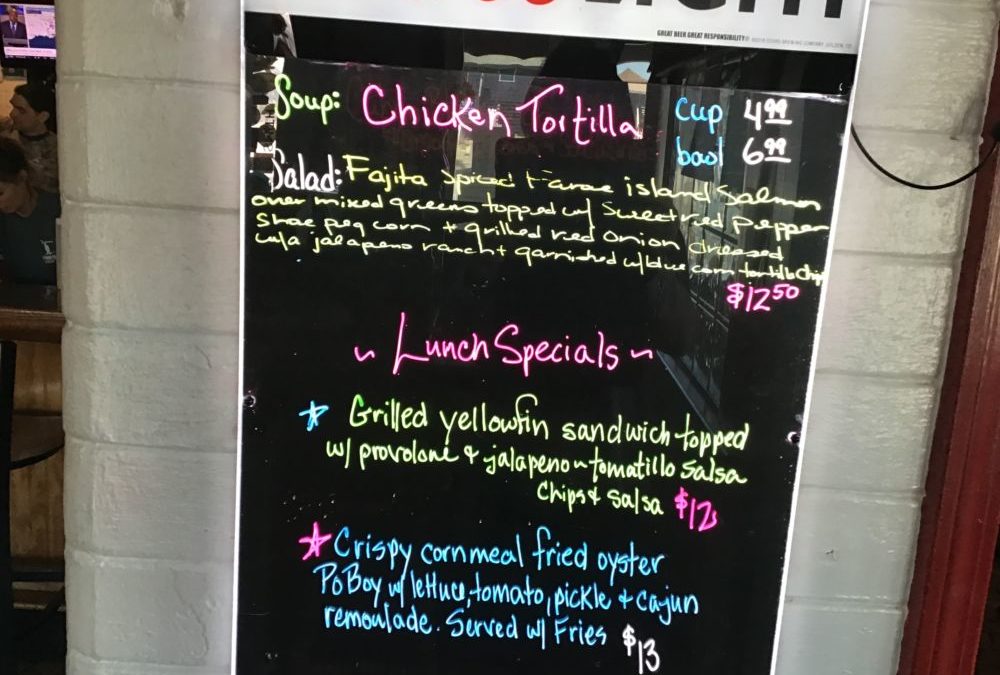 LIGHT
GREAT BEER GREAT RESPONSIBILITY®
Soup: Chicken Tortilla cup 4.99
bowl 6.99
Salad: Fajita Spiced Faroe island Salmon
over mixed greens topped w/ Sweet red pepper
Shoe peg corn + grilled red onion dressed
w/a jalapeno ranch + garnished w/blue corn tortilla chips
$12.50
~ Lunch Specials ~
Grilled yellowfin sandwich topped
w/ provolone & jalapeno-tomatillo salsa
Chips & salsa $12
Crispy cornmeal fried oyster
PoBoy w/ lettuce, tomato, pickle & cajun
remoulade. Served w/ Fries $13